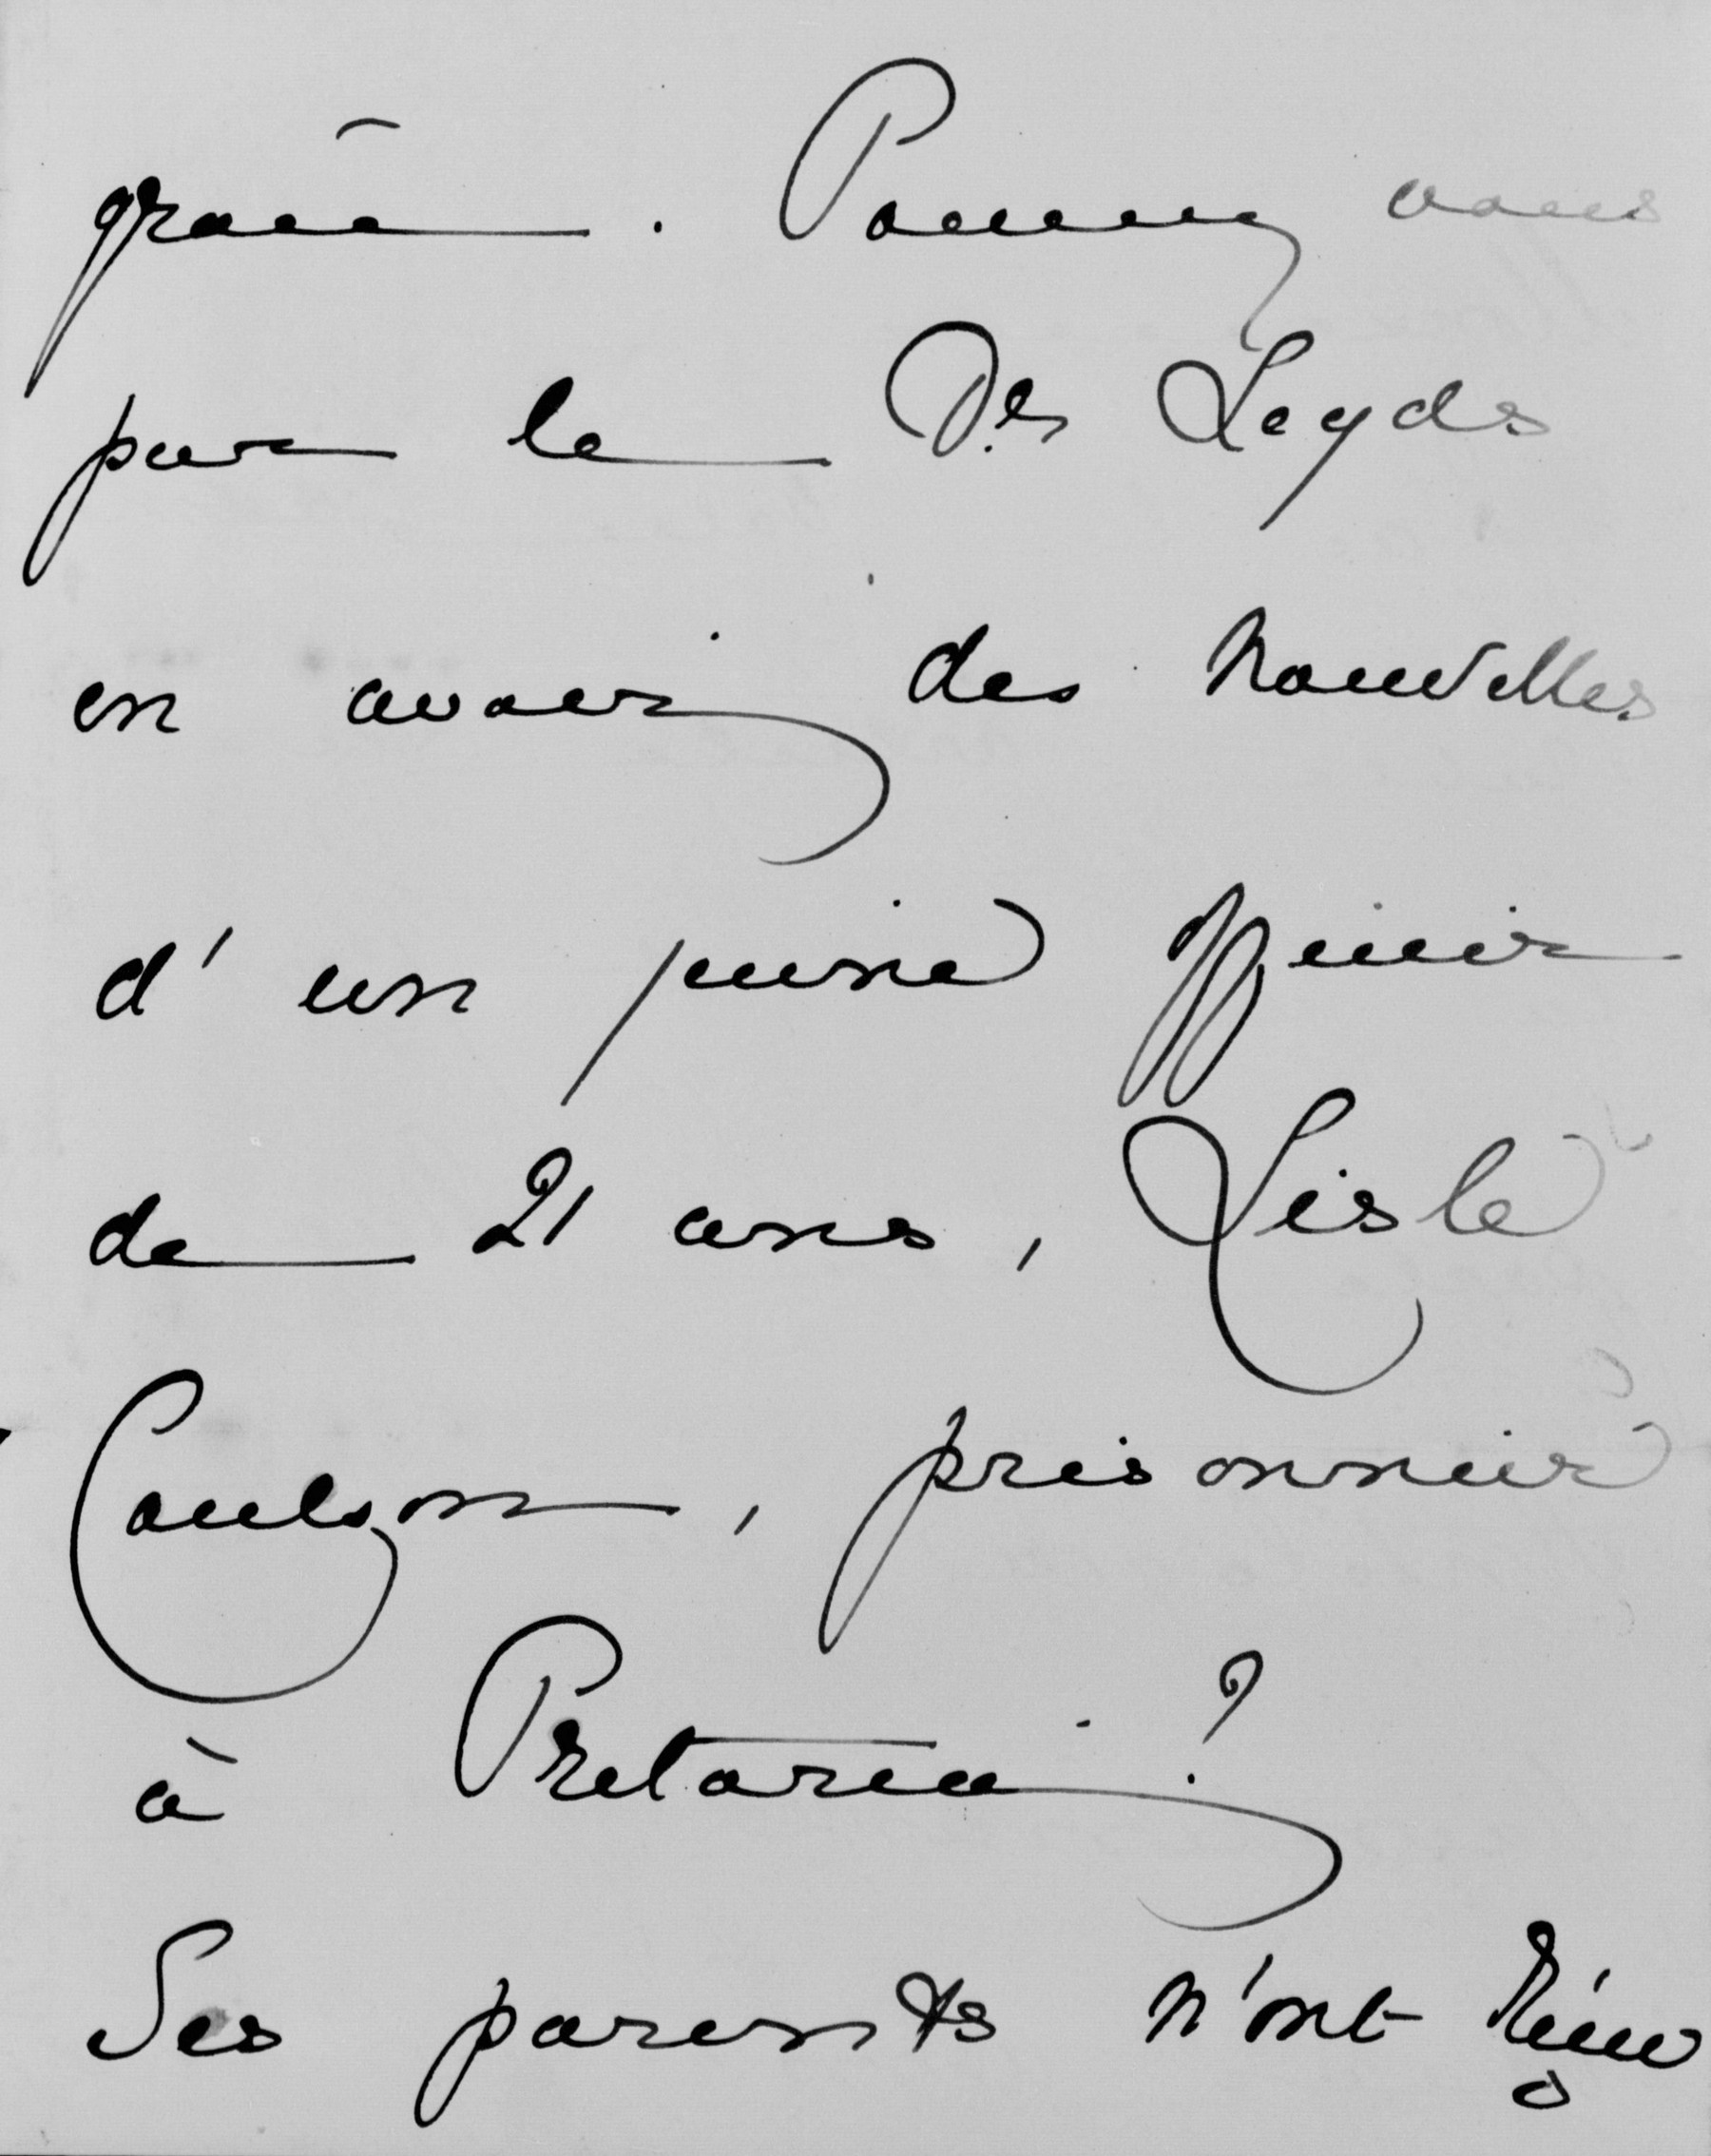 grâce. Pouvez vous
par le Dr. Leyds
en avoir des nouvelles
d'un jeune officier
de 21 ans, Lisle
Coulson, prisonnier
à Pretoria?
Ses parents n'ont